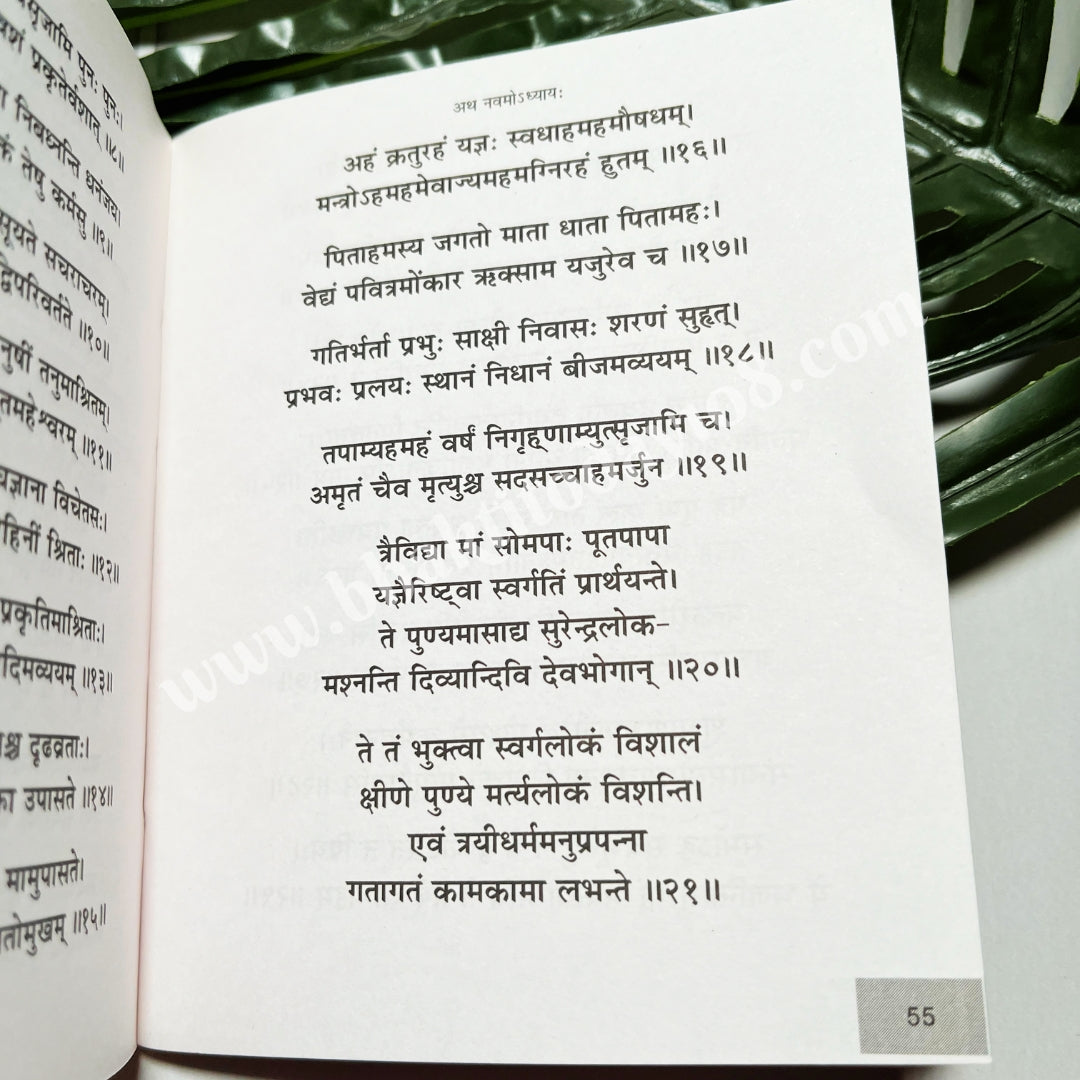 सृजामि पुनः पुनः।
प्रकृतेर्वशात् ॥८॥
निबध्नन्ति धनंजय।
तेषु कर्मसु ॥९॥
सूयते सचराचरम्।
द्विपरिवर्तते ॥१०॥
नुषीं तनुमाश्रितम्।
तमहेश्वरम् ॥११॥
ज्ञाना विचेतसः।
हिनीं श्रिताः ॥१२॥
प्रकृतिमाश्रिताः।
दिमव्ययम् ॥१३॥
श्च दृढव्रताः।
उपासते ॥१४॥
मामुपासते।
तोमुखम् ॥१५॥
अथ नवमोऽध्यायः
अहं क्रतुरहं यज्ञः स्वधाहमहमौषधम्।
मन्त्रोऽहमहमेवाज्यमहमग्निरहं हुतम् ॥१६॥
पिताहमस्य जगतो माता धाता पितामहः।
वेद्यं पवित्रमोंकार ऋक्साम यजुरेव च ॥१७॥
गतिर्भर्ता प्रभुः साक्षी निवासः शरणं सुहृत्।
प्रभवः प्रलयः स्थानं निधानं बीजमव्ययम् ॥१८॥
तपाम्यहमहं वर्षं निगृह्णाम्युत्सृजामि च।
अमृतं चैव मृत्युश्च सदसच्चाहमर्जुन ॥१९॥
त्रैविद्या मां सोमपाः पूतपापा
यज्ञैरिष्ट्वा स्वर्गतिं प्रार्थयन्ते।
ते पुण्यमासाद्य सुरेन्द्रलोक-
मश्नन्ति दिव्यान्दिवि देवभोगान् ॥२०॥
ते तं भुक्त्वा स्वर्गलोकं विशालं
क्षीणे पुण्ये मर्त्यलोकं विशन्ति।
एवं त्रयीधर्ममनुप्रपन्ना
गतागतं कामकामा लभन्ते ॥२१॥
55